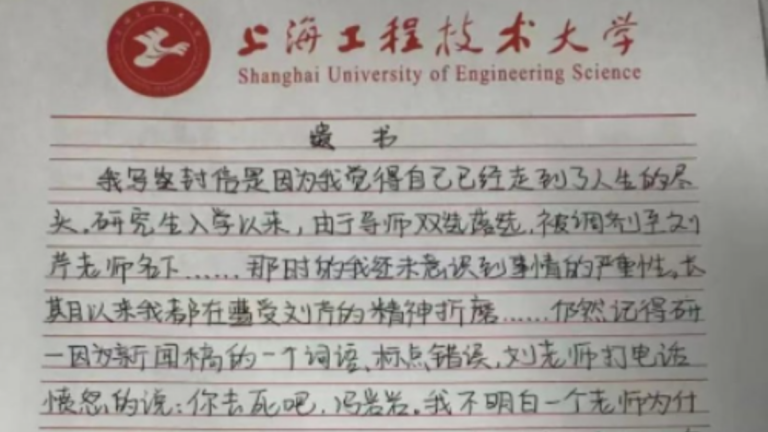 上海工程技术大学
Shanghai University of Engineering Science
遗 书
我写这封信是因为我觉得自己已经走到了人生的尽
头。研究生入学以来，由于导师双选落选，被调剂至刘
芹老师名下……那时的我还未意识到事情的严重性。长
期以来我都在遭受刘芹的精神折磨……仍然记得研
一因为新闻稿的一个词语、标点错误，刘老师打电话
愤怒的说：你去死吧，冯岩岩。我不明白一个老师为什